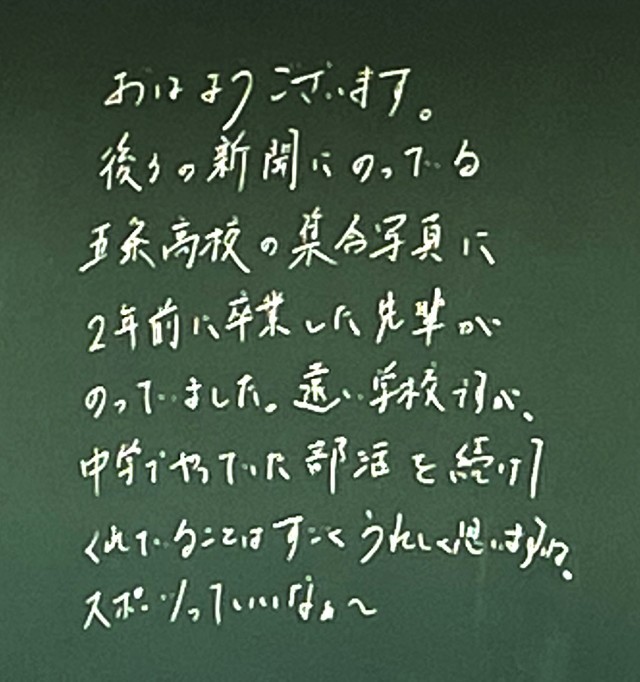 おはようございます。
後ろの新聞にのっている
五条高校の集合写真に
2年前に卒業した先輩が
のっていました。遠い学校ですが、
中学でやっていた部活を続けて
くれていることはすごくうれしく思いますね。
スポーツっていいなぁ～